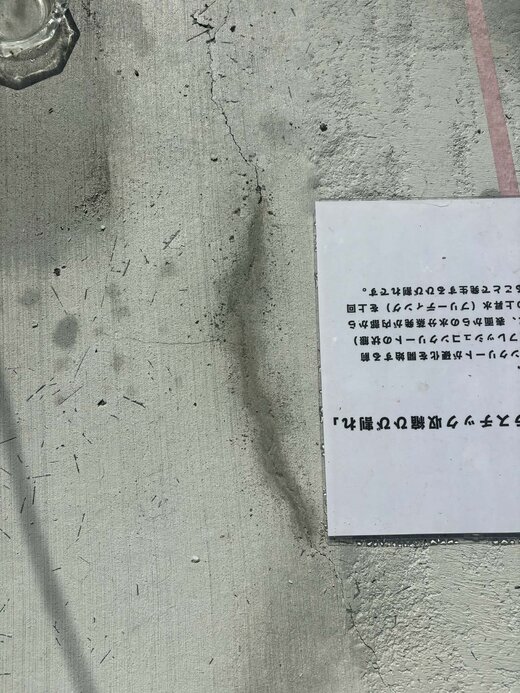 ラスチック収縮ひび割れ」
ンクリートが硬化を開始する前
フレッシュコンクリートの状態）
、表面からの水分蒸発が内部から
上昇水（ブリーディング）を上回
ることで発生するひび割れです。